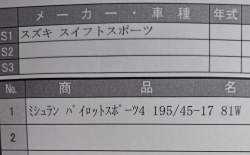 メーカー・車種 年式
S1 スズキ スイフトスポーツ
S2
S3
No. 商品名
1 ミシュラン パイロットスポーツ4 195/45-17 81W
2